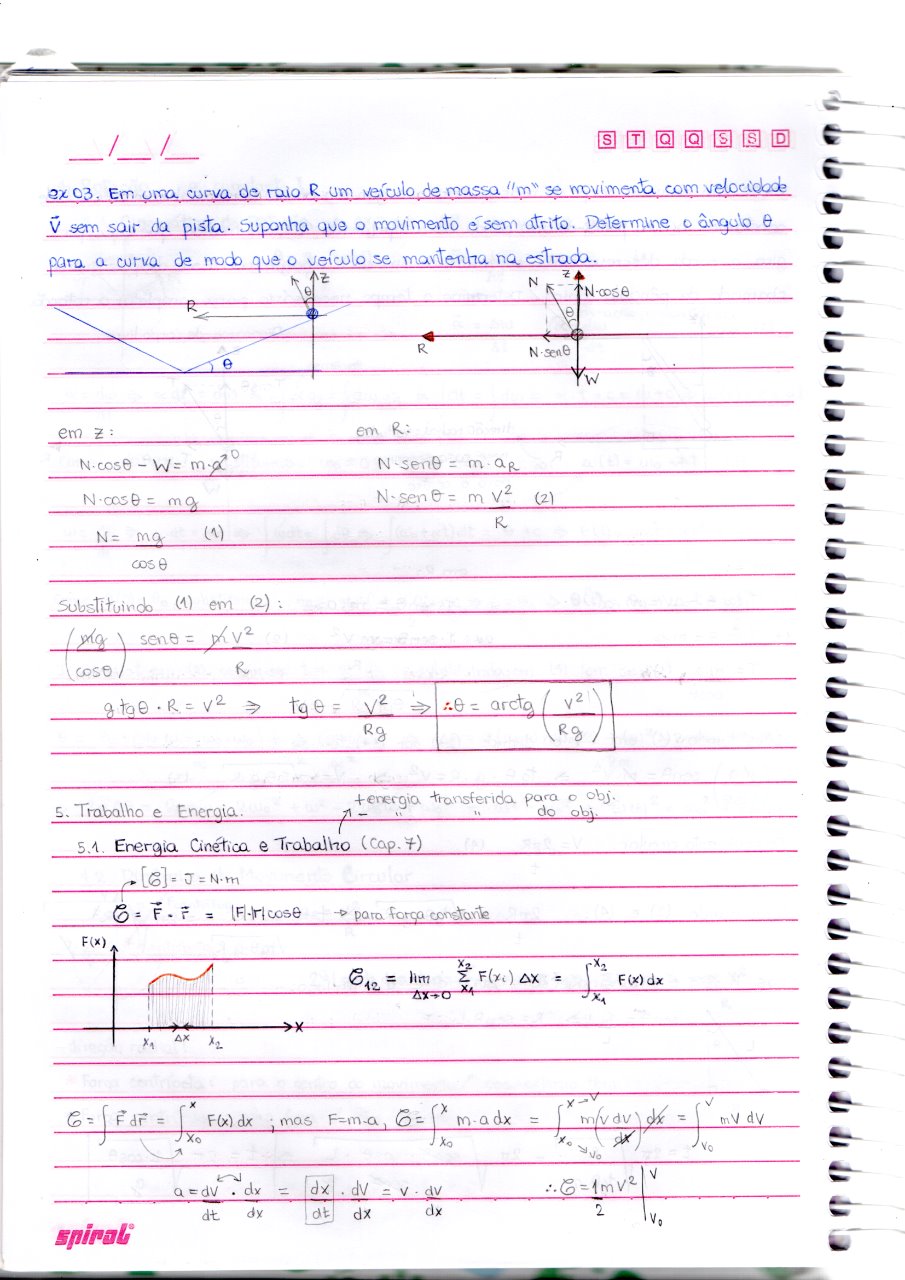 __/__/__
S T Q Q S S D
ex 03. Em uma curva de raio R um veículo de massa "m" se movimenta com velocidade
V⃗ sem sair da pista. Suponha que o movimento é sem atrito. Determine o ângulo θ
para a curva de modo que o veículo se mantenha na estrada.
R θ z θ
N z N·cosθ θ R N·senθ W
em z: em R:
N·cosθ - W = m·a⁰ N·senθ = m·aR
N·cosθ = mg N·senθ = m V²/R (2)
N = mg/cosθ (1)
Substituindo (1) em (2):
(mg/cosθ) senθ = m V²/R
g tgθ · R = V² ⇒ tgθ = V²/Rg ⇒ ∴θ = arctg (V²/Rg)
+ energia transferida para o obj.
- " " do obj.
5. Trabalho e Energia.
5.1. Energia Cinética e Trabalho (Cap. 7)
[𝒢] = J = N·m
𝒢 = F⃗ · r⃗ = |F|·|r| cosθ → para força constante
F(x) x₁ Δx x₂ x
𝒢₁₂ = lim Δx→0 Σ x₁ x₂ F(xi) Δx = ∫x₁ x₂ F(x) dx
𝒢 = ∫ F⃗ dr⃗ = ∫x₀ x F(x) dx ; mas F=m·a, 𝒢 = ∫x₀ x m·a dx = ∫x₀→v₀ x→v m(v dv/dx) dx = ∫v₀ v mv dv
a = dv/dt · dx/dx = dx/dt · dv/dx = v · dv/dx ∴ 𝒢 = 1/2 mv² |v₀ v
spiral®